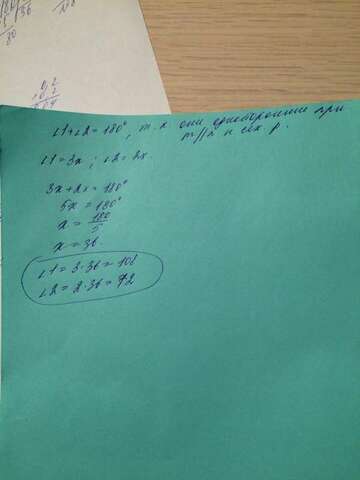 ∠1+∠2=180°, т.к они односторонние при
m||n и сек p.
∠1=3x; ∠2=2x
3x+2x=180°
5x=180°
x=180/5
x=36.
∠1=3·36=108
∠2=2·36=72